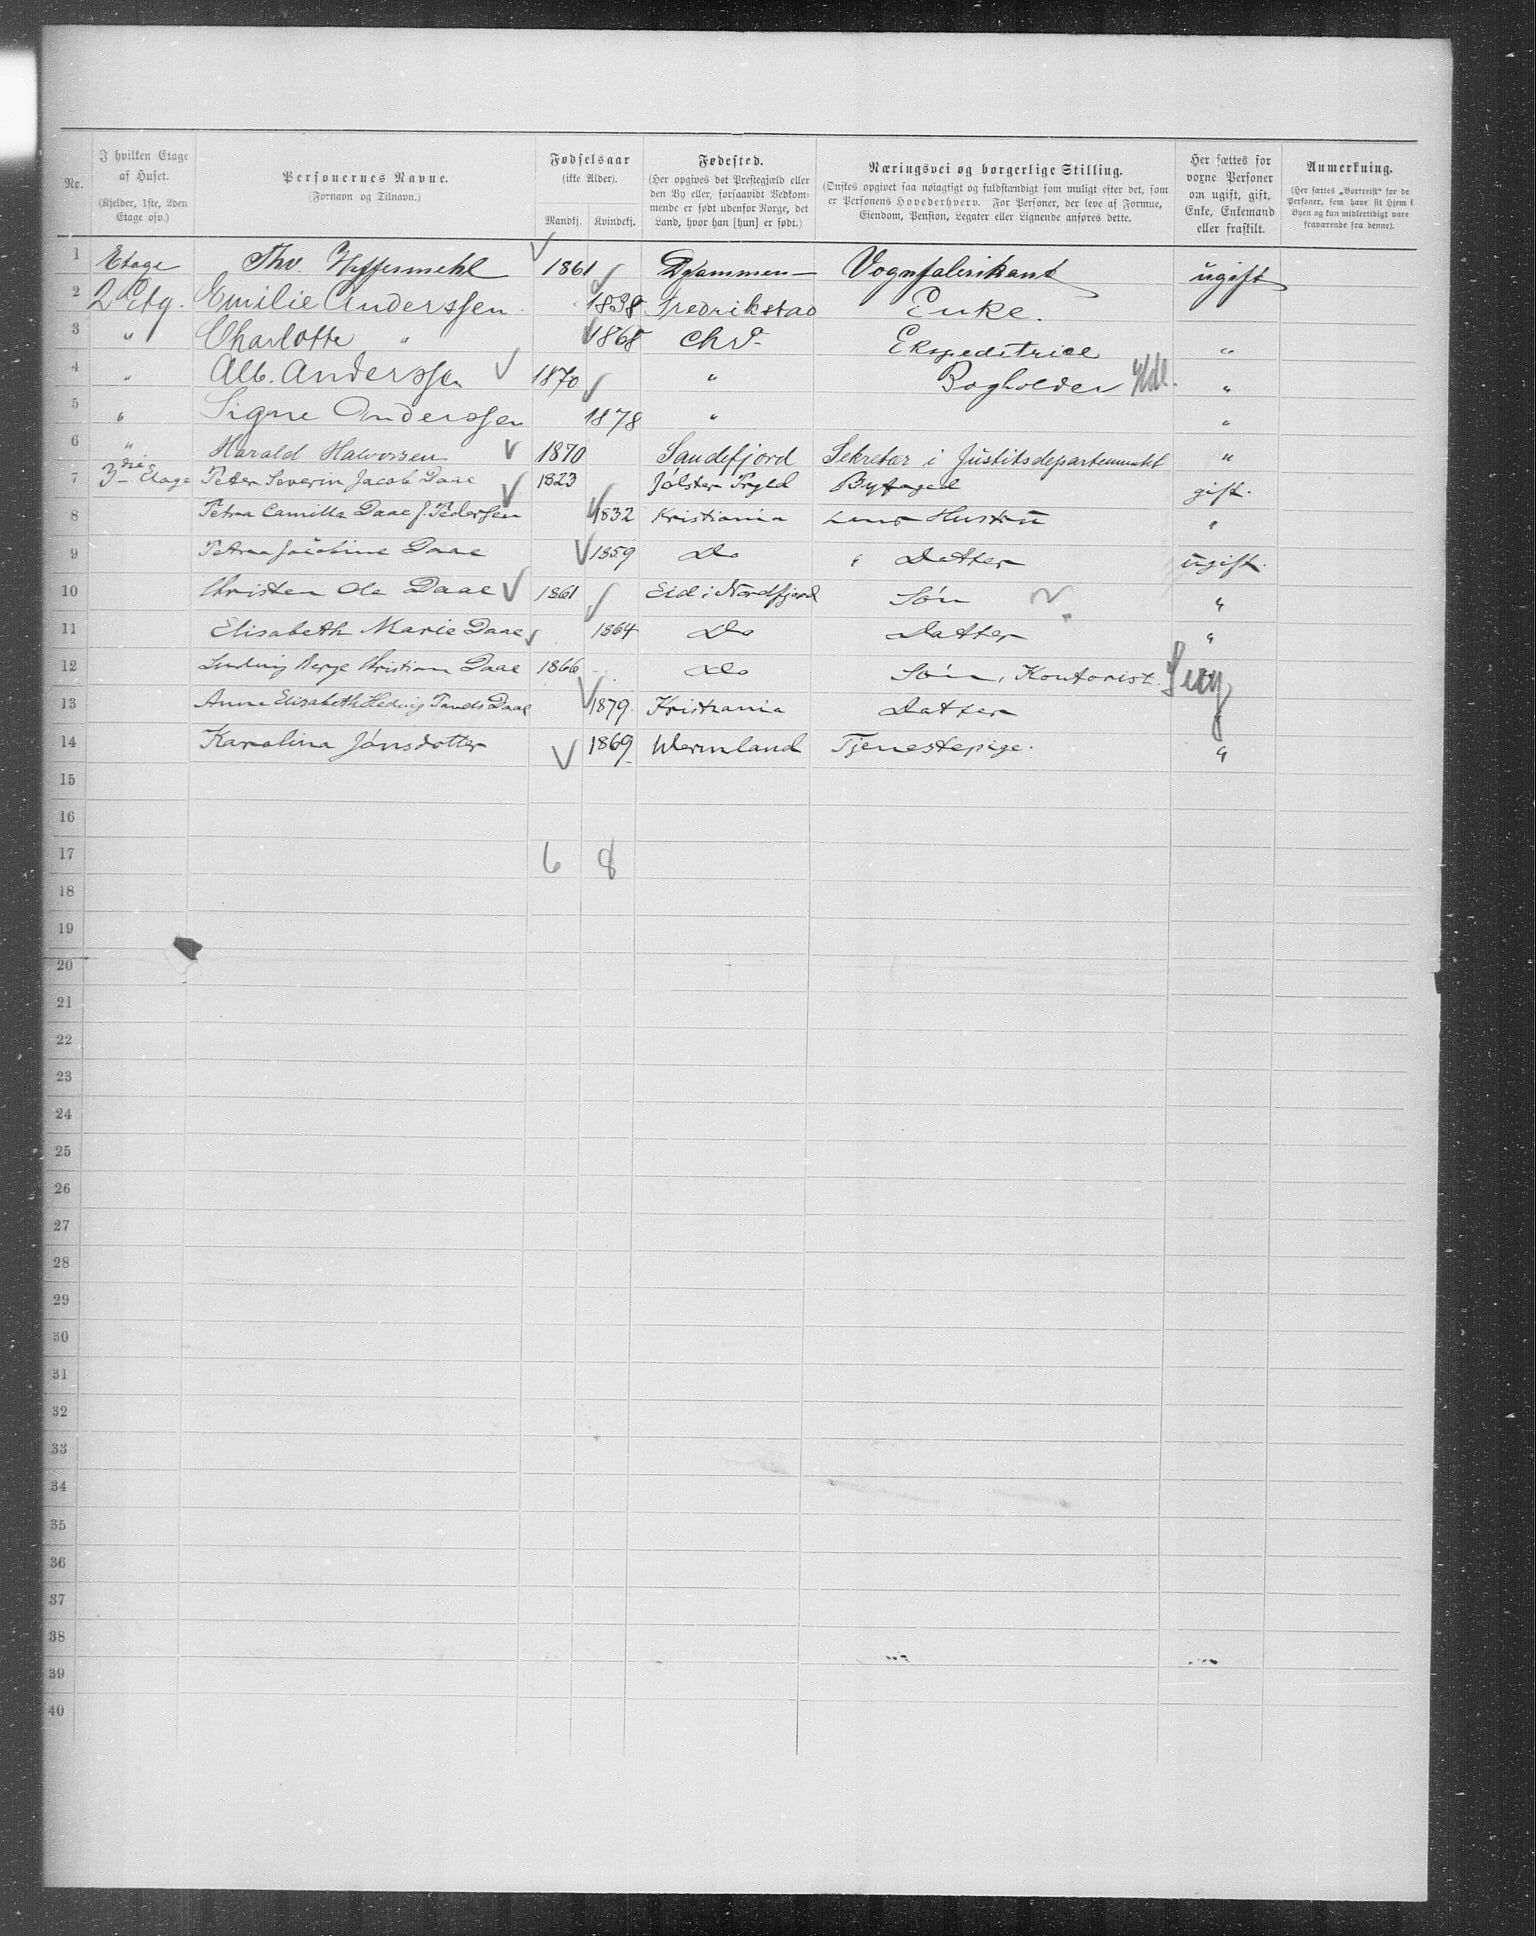 No.
I hvilken Etage af Huset.
(Kjelder, 1ste, 2den Etage osv.)
Personernes Navne.
(Fornavn og Tilnavn.)
Fødselsaar
(ikke Alder).
Mandkj. Kvindekj.
Fødested.
(Her opgives det Prestegjæld eller den By eller, forsaavidt Vedkommende er født udenfor Norge, det Land, hvor han [hun] er født.)
Næringsvei og borgerlige Stilling.
(Ønskes opgivet saa nøiagtigt og fuldstændigt som muligt efter det, som er Personens Hovederhverv. For Personer, der leve af Formue, Eiendom, Pension, Legater eller Lignende anføres dette.
Her sættes for voxne Personer om ugift, gift, Enke, Enkemand eller fraskilt.
Anmerkning.
(Her sættes „Bortreist“ for de Personer, som have sit Hjem i Byen og kun midlertidigt vare fraværende fra denne).
1 Etage Thv. Heffermehl 1861 Drammen Vognfabrikant ugift
2 2 Etg. Emilie Anderssen 1838 Fredrikstad Enke.
3 " Charlotte " 1868 Chr. Ekspeditrice "
4 " Alb. Anderssen 1870 " Bogholder Hdl. "
5 " Signe Anderssen 1878 " "
6 " Harald Halvorsen 1870 Sandefjord Sekretær i Justitsdepartementet "
7 3die Etage Peter Severin Jacob Daae 1823 Jølster Prgld Byfoged gift.
8 Petra Camilla Daae f. Pedersen 1832 Kristiania hans Hustru "
9 Petrea Jacobine Daae 1859 Do " Datter ugift.
10 Christen Ole Daae 1861 Eid i Nordfjord Søn "
11 Elisabeth Marie Daae 1864 Do Datter "
12 Ludvig Berge Christian Daae 1866 Do Søn, Kontorist.
13 Anna Elisabeth Hedvig Daae 1879. Kristiania Datter "
14 Karolina Jónsdotter 1869 Wermland Tjenestepige. "
15
16
17 6 8
18
19
20
21
22
23
24
25
26
27
28
29
30
31
32
33
34
35
36
37
38
39
40